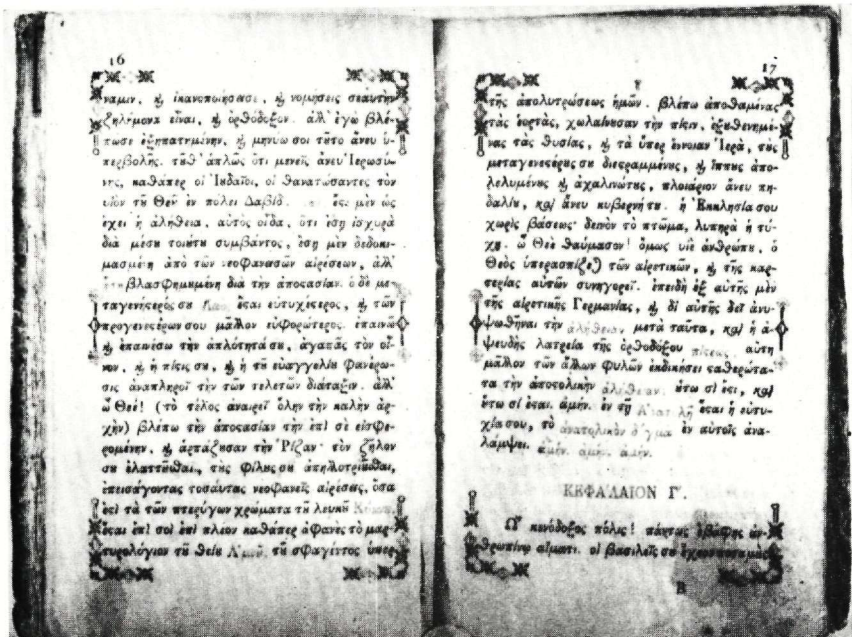 16
ναμιν, ϗ ἱκανοποιήσεισε, ϗ νομίσεις σεαυτὴν
ζηλήμονα εἶναι, ϗ ὀρθόδοξον. ἀλλ' ἐγὼ βλέ-
πωσε ἐξηπατημένην, ϗ μηνύω σοι τῦτο ἄνευ ὑ-
περβολῆς. τῦθ' ἁπλῶς ὅτι μενεῖς ἄνευ Ἱερωσύ-
νης, καθάπερ οἱ Ἰυδαῖοι, οἱ θανατώσαντες τὸν
υἱὸν τῦ Θεῦ ἐν πόλει Δαβίδ. ἔςι μὲν ὡς
ἔχει ἡ ἀλήθεια, αὐτὸς οἶδα, ὅτι ἔσῃ ἰσχυρὰ
διὰ μέσυ τοιύτυ συμβάντος, ἔσῃ μὲν δεδοκι-
μασμένη ἀπὸ τῶν νεοφανισῶν αἱρέσεων, ἀλλ'
βλασφημυμένη διὰ τὴν ἀποςασίαν. ὁ δὲ με-
ταγενέςερός συ ἔςαι εὐτυχέςερος, ϗ τῶν
προγενεςέρων σου μᾶλλον εὐφορώτερος. ἐπαινῶ
ϗ ἐπαινέσω τὴν ἁπλότητά συ, ἀγαπᾷς τὸν οἶ-
νον, ϗ ἡ πίςις συ, ϗ ἡ τῦ εὐαγγελίυ φανέρω-
σις ἀναπληροῖ τὴν τῶν τελετῶν διάταξιν. ἀλλ'
ὦ Θεέ! (τὸ τέλος ἀναιρεῖ ὅλην τὴν καλὴν ἀρ-
χὴν) βλέπω τὴν ἀποςασίαν τὴν ἐπὶ σὲ εἰσφε-
ρομένην, ϗ ἁρπάζυσαν τὴν Ῥίζαν· τὸν ζῆλον
συ ἐλαττῦθαι, τὺς φίλυς συ ἀπηλλοτριῦθαι,
ἐπεισάγοντας τοσαύτας νεοφανεῖς αἱρέσεις, ὅσα
ἐςὶ τὰ τῶν πτερύγων χρώματα τῦ λευκῦ
ἔςαι ἐπὶ σοὶ ἐπὶ πλέον καθάπερ ἀφανὲς τὸ μαρ-
τυρολόγιον τῦ θείυ τῦ σφαγέντος ὑπερ
17
τῆς ἀπολυτρώσεως ἡμῶν. βλέπω ἀποθαμένας
τὰς ἑορτὰς, χωλαίνυσαν τὴν πίςιν, ἐξυθενημέ-
νας τὰς θυσίας, ϗ τὰ ὑπὲρ ἔννοιαν Ἱερὰ, τὺς
μεταγενεςέρυς συ διεςραμμένυς, ϗ ἵππυς ἀπο-
λελυμένυς ϗ ἀχαλινώτυς, πλοιάριον ἄνευ πη-
δαλίυ, καὶ ἄνευ κυβερνήτυ. ἡ Ἐκκλησία σου
χωρὶς βάσεως· δεινὸν τὸ πτῶμα, λυπηρὰ ἡ τύ-
χη. ὦ Θεὲ θαύμασον! ὅμως υἱὲ ἀνθρώπυ, ὁ
Θεὸς ὑπερασπίζεται τῶν αἱρετικῶν, ϗ τῆς καρ-
τερίας αὐτῶν συνηγορεῖ. ἐπειδὴ ἐξ αὐτῆς μὲν
τῆς αἱρετικῆς Γερμανίας, ϗ δι' αὐτῆς δεῖ ἀνυ-
ψωθῆναι τὴν ἀλήθειαν. μετὰ ταῦτα, καὶ ἡ ἀ-
ψευδὴς λατρεία τῆς ὀρθοδόξου πίςεως. αὕτη
μᾶλλον τῶν ἄλλων φυλῶν ἐκδικήσει ςαθερώτα-
τα τὴν ἀποςολικὴν ἀλήθειαν. ὕτω σί ἐςι, καὶ
ὕτω σί ἔςαι. ἀμήν. ἐν τῇ Ἀνατολῇ ἔςαι ἡ εὐτυ-
χία σου, τὸ ἀνατολικὸν δόγμα ἐν αὐτοῖς ἀνα-
λάμψει. ἀμήν. ἀμήν. ἀμήν.
ΚΕΦΑΛΑΙΟΝ Γ'.
Ὦ κενόδοξος πόλις! πάντως ἐβάφης ἀν-
θρωπίνῳ αἵματι. οἱ βασιλεῖς συ
B